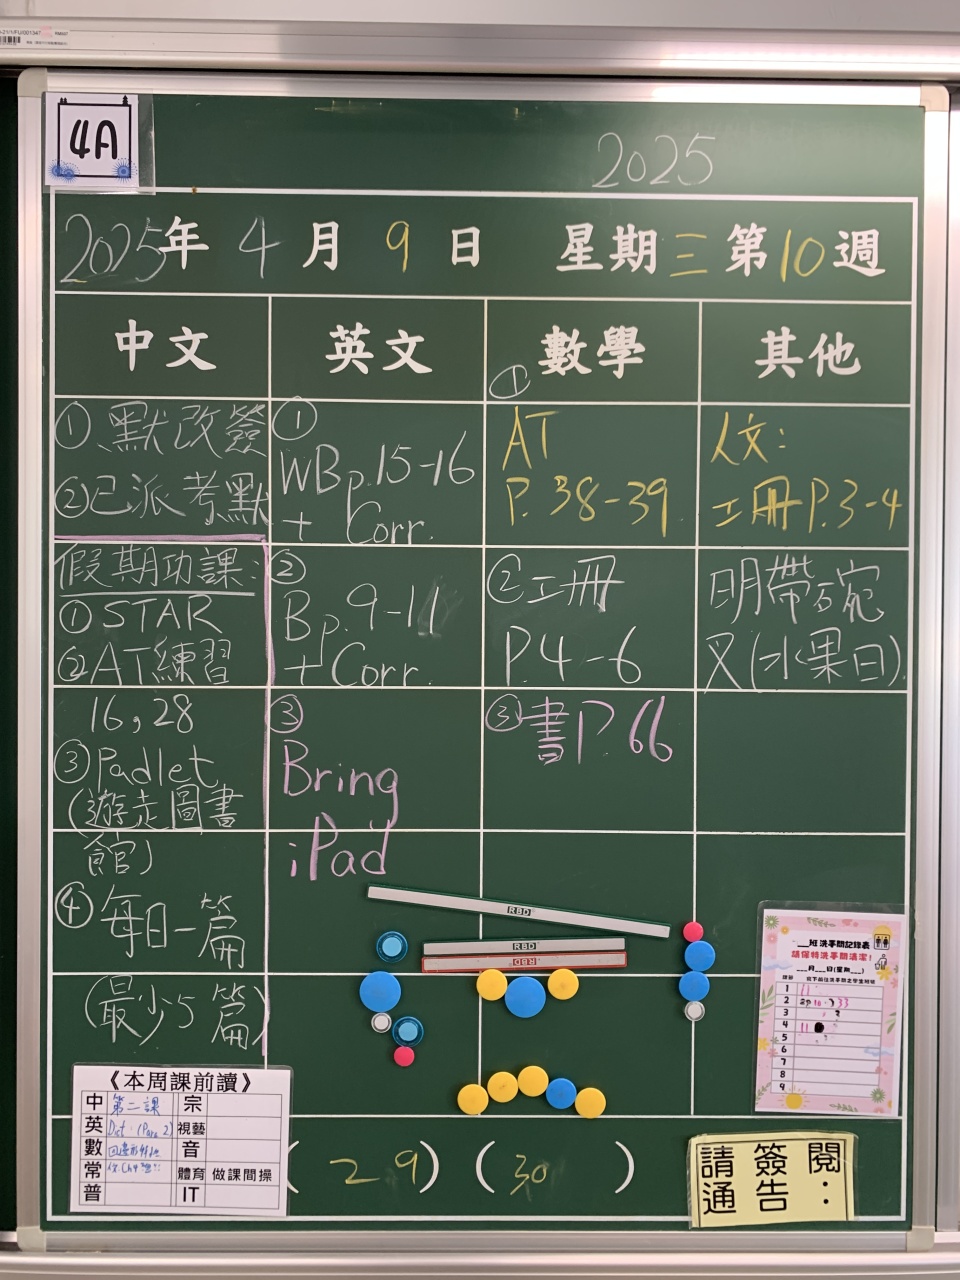 4A
2025
2025年 4 月 9 日 星期三第10週
中文 英文 數學 其他
①默改簽
②已派考默
假期功課:
①STAR
②AT練習
16,28
③Padlet
(遊走圖書
館)
④每日一篇
(最少5篇)
①
WB p.15-16
+ Corr.
②
B p.9-11
+ Corr.
③
Bring
iPad
①
AT
P.38-39
②工冊
P.4-6
③書P.66
人文:
工冊P.3-4
明帶碗
叉(水果日)
RBD
RBD
RBD
班洗手間記錄表
請保持洗手間清潔!
月 日(星期 )
1 11
2
3
4 11
5
6
7
8
9
《本周課前讀》
中 第二課 宗
英 Dict: (Para 2) 視藝
數 音
常 體育 做課間操
普 IT
( 29 ) ( 30 )
請簽閱:
通告